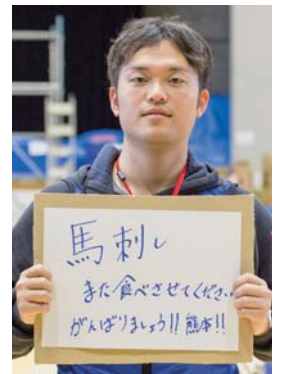 馬刺し
また食べさせてください
がんばりましょう!! 熊本!!